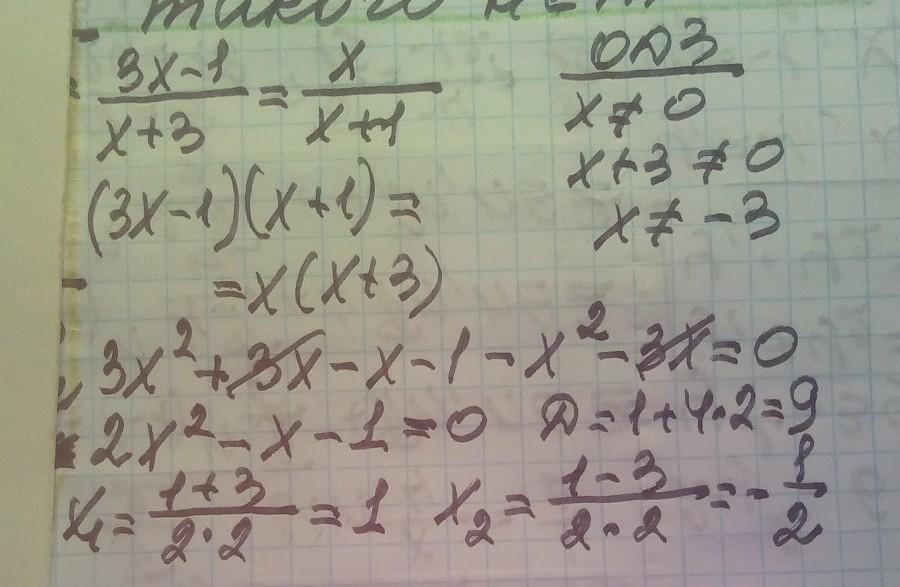 такого
3x-1/x+3 = x/x+1 ОДЗ
x≠0
x+3≠0
(3x-1)(x+1)= x≠-3
=x(x+3)
3x²+3x-x-1-x²-3x=0
2x²-x-1=0 Д=1+4·2=9
x₁=1+3/2·2=1 x₂=1-3/2·2=-1/2